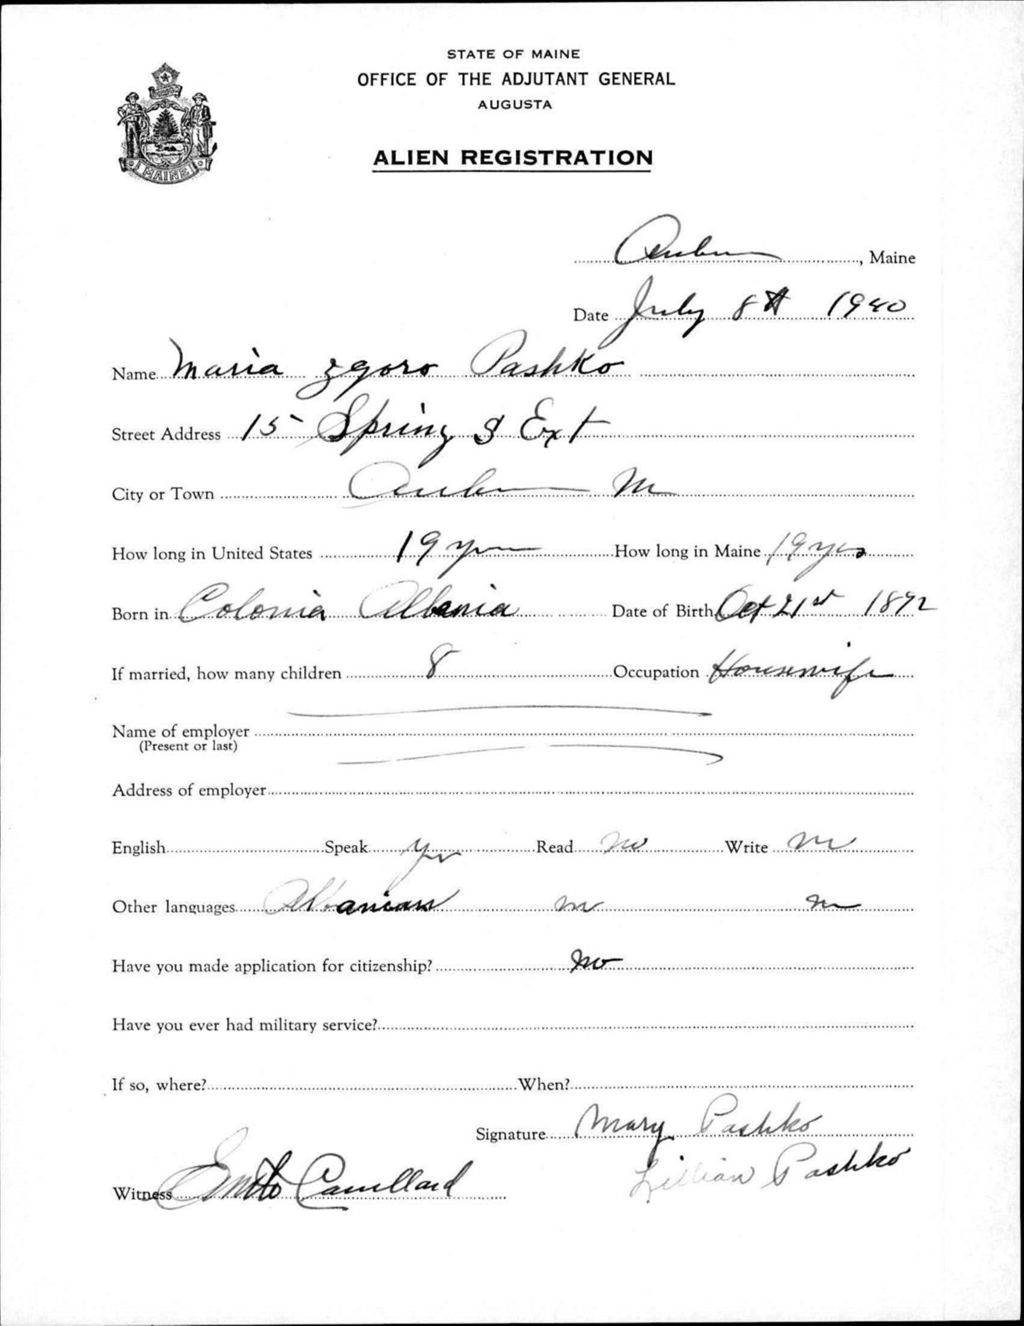 STATE OF MAINE
OFFICE OF THE ADJUTANT GENERAL
AUGUSTA
MAINE
ALIEN REGISTRATION
Auburn, Maine
Date July 8th 1940
Name Maria Zgoro Pashko
Street Address 15 Spring S Ext
City or Town Auburn M
How long in United States 19 yrs How long in Maine 19 yrs
Born in Colonia Albania Date of Birth Oct 21st 1892
If married, how many children 8 Occupation Housewife
Name of employer
(Present or last)
Address of employer
English Speak Yes Read No Write No
Other languages Albanian no no
Have you made application for citizenship? No
Have you ever had military service?
If so, where? When?
Signature Mary Pashko
Lillian Pashko
Witness